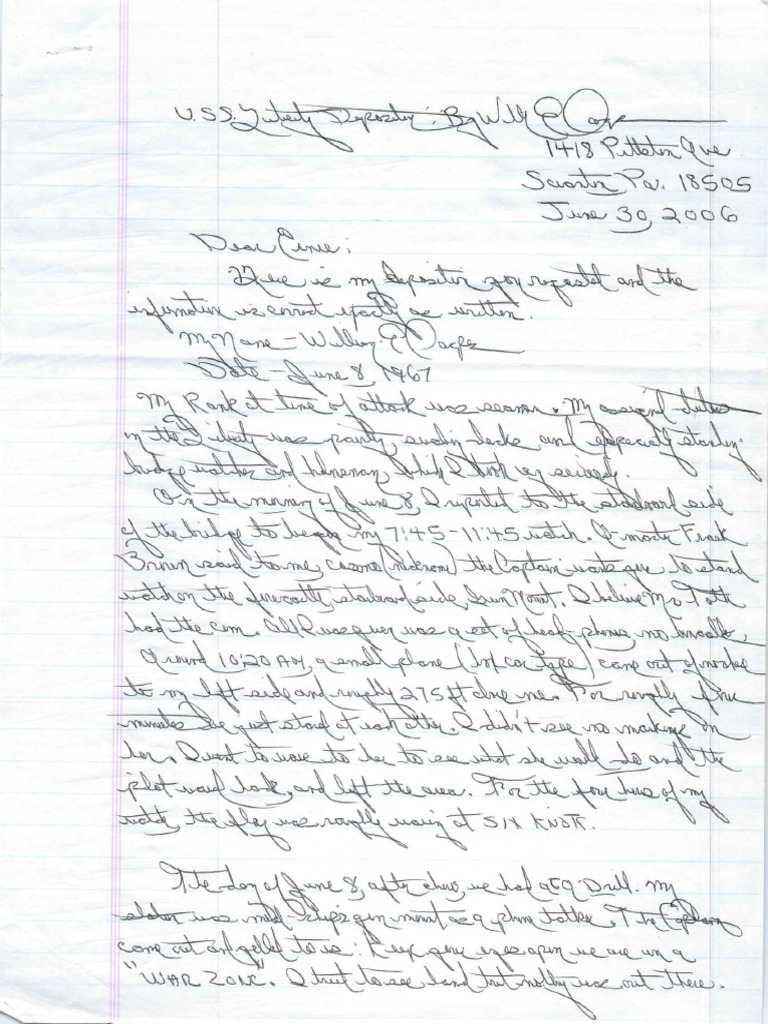 U.S.S. Liberty Deposition: By
1418 Pittston Ave
Scranton Pa. 18505
June 30, 2006
Dear Ernie;
Here is my deposition you requested and the
information is correct exactly as written.
My Name - William E
Date - June 8, 1967
My Rank at time of attack was seaman. My assigned duties
on the Liberty was painting, decks and especially standing
bridge watches and helmsman, which I took very seriously.
On the morning of June 8, I reported to the starboard side
of the bridge to my 7:45-11:45 watch. Q master Frank
Brown said to me, (nickname) the Captain wants you to stand
watch on the starboard side, Gun Mount. I believe Mr. Toth
had the con. All I was given was a set of head-phones, no binoculars.
Around 10:20 AM, a small plane (box car type) came out of nowhere
to my left side and roughly 275 ft above me. For roughly
minutes we just stared at each other. I didn't see no marking on
her. I went to wave to her to see what she would do and the
pilot waved back, and left the area. For the four hours of my
watch, the flag was roughly waving at SIX KNOTS.
The day of June 8, after chow, we had a GQ Drill. My
station was mid-ships gun mount as a phone talker. The Captain
came out and yelled to us: Keep your eyes open we are in a
"WAR ZONE". I tried to see land but nothing was out there.